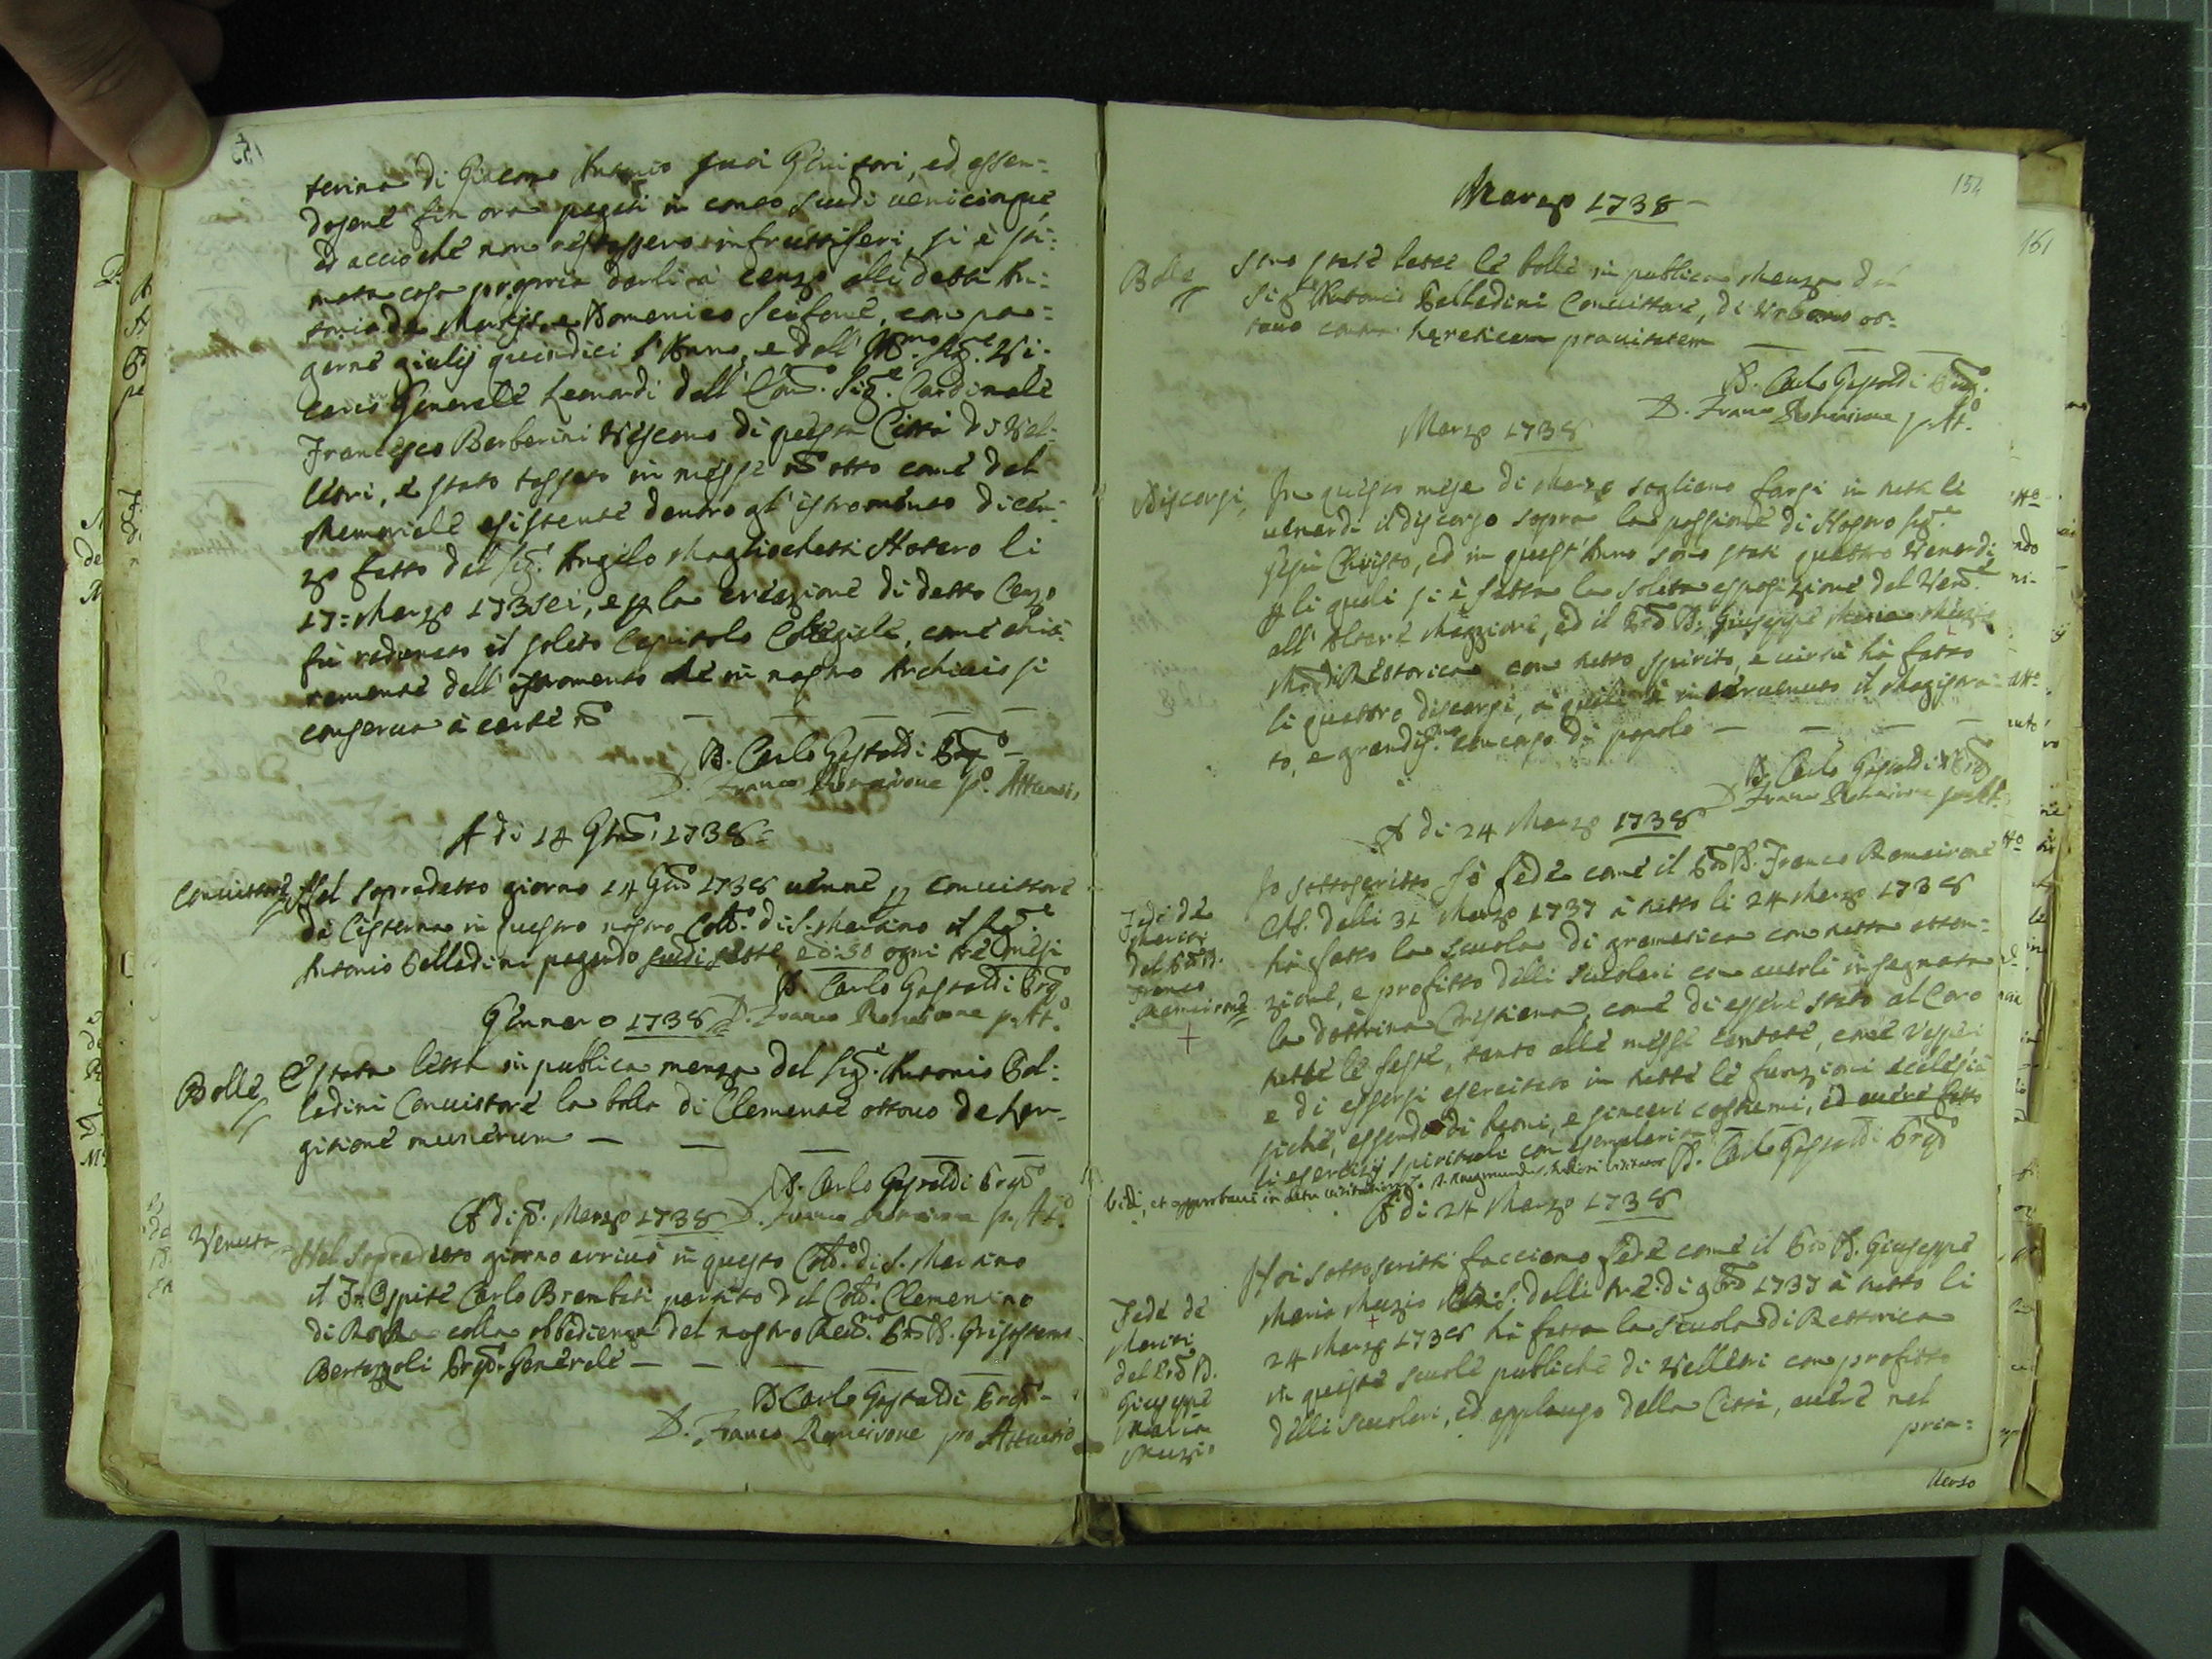 153
terina di Giacomo Antonio suoi Genitori, ed essen-
dosene fin ora pagati in conto scudi venicinque
ed acciochè non restassero infruttiferi, si è sti-
mata cosa propria darli à censo alli detti An-
tonio de Marchis, e Domenico Scifone, con pa-
garne giulij quindici l'Anno, e dall' Ill.mo Sig.e Vi-
cario Generale Leonardi dell' Em.o Sig.e Cardinale
Francesco Barberini Vescovo di questa Città di Vel-
letri, è stato tassato in messe n.o otto come dal
Memoriale esistente dentro gl' istromento di cen-
zo fatto dal Sig.e Angelo Magliochetti Notaro li
17= Marzo 173sei, e p la erezione di detto Cenzo
fù radunato il solito Capitolo Collegiale, come chia-
ramente dall' istromento che in nostro Archivio si
conserva à carte n.o
D. Carlo Gastaldi Prep.o
D. Franco Romairone p.o Attuario
A dì 14 Gen.o 1738=
Convittore Nel sopradetto giorno 14 Gen.o 1738 venne p convittore
da Cisterna in questo nostro Coll.o di S. Martino il Sig.e
Antonio Belladini pagando scudi sette, e d: 50 ogni tré mesi
D. Carlo Gastaldi Prep.o
D. Franco Romairone p. Att.o
Gennaro 1738
Bolle È stata letta in publica mensa dal Sig.e Antonio Bel-
ladini Convittore la bolla di Clemente ottavo de lar-
gitione munerum
D. Carlo Gastaldi Prep.o
D. Franco Romairone p. Att.o
A dì p.o Marzo 1738
Venuta Nel sopradetto giorno arrivò in questo Coll.o di S. Martino
il Fr. Ospite Carlo Brambati partito dal Coll.o Clementino
di Roma colla obbedienza del nostro Rev.mo P.re D. Grisostomo
Bertazzoli Prep.o Generale
D. Carlo Gastaldi Prep.o
D. Franco Romairone pro Attuario
154
161
Marzo 1738
Bolle Sono state lette le bolle in publica Menza dal
Sig.e Antonio Belladini Convittore, di Urbano ot-
tavo contra hereticam pravitatem
D. Carlo Gastaldi Prep.o
D. Franco Romairone p. Att.o
Marzo 1738
Discorsi, In questo mese di Marzo sogliono farsi in tutti li
venerdì il discorso sopra la passione di Nostro Sig.e
Gesù Christo, ed in quest' Anno sono stati quattro Venerdì
p li quali si è fatta la solita esposizione del Ven.e
all' Altare Maggiore, ed il P.re D. Giuseppe Maria Muzio
M.ro di Rettorica con tutto spirito, e virtù hà fatto
li quattro discorsi, a quali è intervenuto il Magistra-
to, e grandis.mo concorso di popolo
D. Carlo Gastaldi Prep.o
D. Franco Romairone p. Att.
A dì 24 Marzo 1738
Fede de
Meriti
del P.re D.
Franco
Romairone
Io sottoscritto fò fede come il P.re D. Franco Romairone
CRS. dalli 31 Marzo 1737 à tutto li 24 Marzo 1738
hà fatto la scuola di gramatica con tutta atten-
zione, e profitto delli scuolari con averli insegnata
la dottrina Cristiana, come di essere stato al Coro
tutte le feste, tanto alle messe cantate, come vesperi
e di essersi esercitato in tutte le funzioni ecclesia-
stiche, essendo di buoni, e sinceri costumi, ed avere fatto
li esercitij spirituali con esemplarità D. Carlo Gastaldi Prep.o
Vidi, et approbavi in actu visitationis D. Raymundus Visitator
A dì 24 Marzo 1738
Fede de
Meriti
del P.re D.
Giuseppe
Maria
Muzio
Noi sottoscritti facciamo fede come il P.re D. Giuseppe
Maria Muzio CRS. dalli tré di 9bre 1737 à tutto li
24 Marzo 1738 hà fatta la scuola di Rettorica
in queste scuole publiche di Velletri con profitto
delli scuolari, ed applauso della Città, avere nel
pren=
Verso